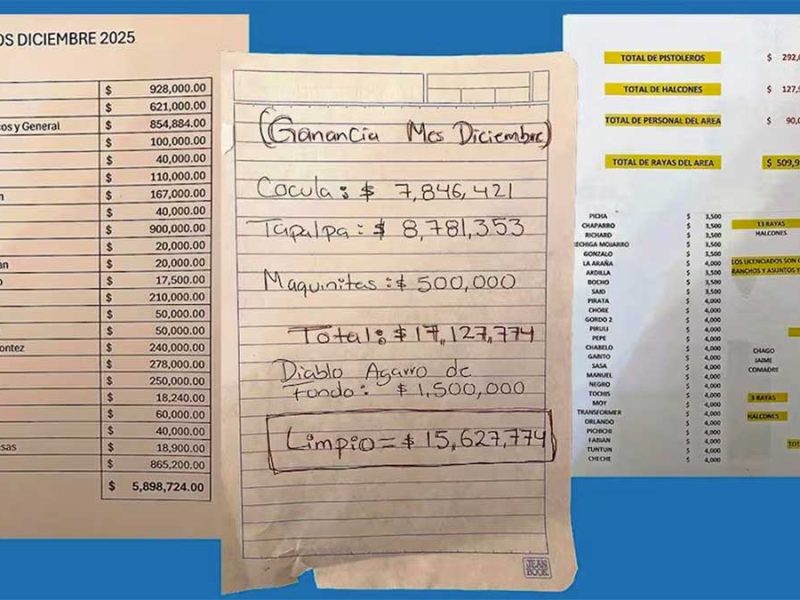 OS DICIEMBRE 2025
$ 928,000.00
$ 621,000.00
os y General $ 854,884.00
$ 100,000.00
$ 40,000.00
$ 110,000.00
$ 167,000.00
$ 40,000.00
$ 900,000.00
$ 20,000.00
an $ 20,000.00
$ 17,500.00
$ 210,000.00
$ 50,000.00
$ 50,000.00
ontez $ 240,000.00
$ 278,000.00
$ 250,000.00
$ 18,240.00
$ 60,000.00
$ 40,000.00
sas $ 18,900.00
$ 865,200.00
$ 5,898,724.00
(Ganancia Mes Diciembre)
Cocula: $ 7,846,421
Tapalpa: $ 8,781,353
Maquinitas: $ 500,000
Total: $ 17,127,774
Diablo Agarro de
fondo: $ 1,500,000
Limpio = $ 15,627,774
JEAN BOOK
TOTAL DE PISTOLEROS $ 292,
TOTAL DE HALCONES $ 127,9
TOTAL DE PERSONAL DEL AREA $ 90,0
TOTAL DE RAYAS DEL AREA $ 509,9
PICHA $ 3,500
CHAPARRO $ 3,500
RICHARD $ 3,500
ECHIGA MOJARRO $ 3,500
GONZALO $ 3,500
LA ARAÑA $ 3,500
ARDILLA $ 3,500
BOCHO $ 3,500
SAID $ 3,500
PIRATA $ 4,000
CHORE $ 4,000
GORDO 2 $ 4,000
PIRULI $ 4,000
PEPE $ 4,000
CHABELO $ 4,000
GABITO $ 4,000
SASA $ 4,000
MANUEL $ 4,000
NEGRO $ 4,000
TOCHIS $ 4,000
MOY $ 4,000
TRANSFORMER $ 4,000
ORLANDO $ 4,000
PICHICHI $ 4,000
FABIAN $ 4,000
TUNTUN $ 4,000
CHECHE $ 4,000
13 RAYAS
HALCONES
LOS LICENCIADOS SON
RANCHOS Y ASUNTOS Y
CHAGO
JAIME
COMADRE
3 RAYAS
HALCONES
TOT